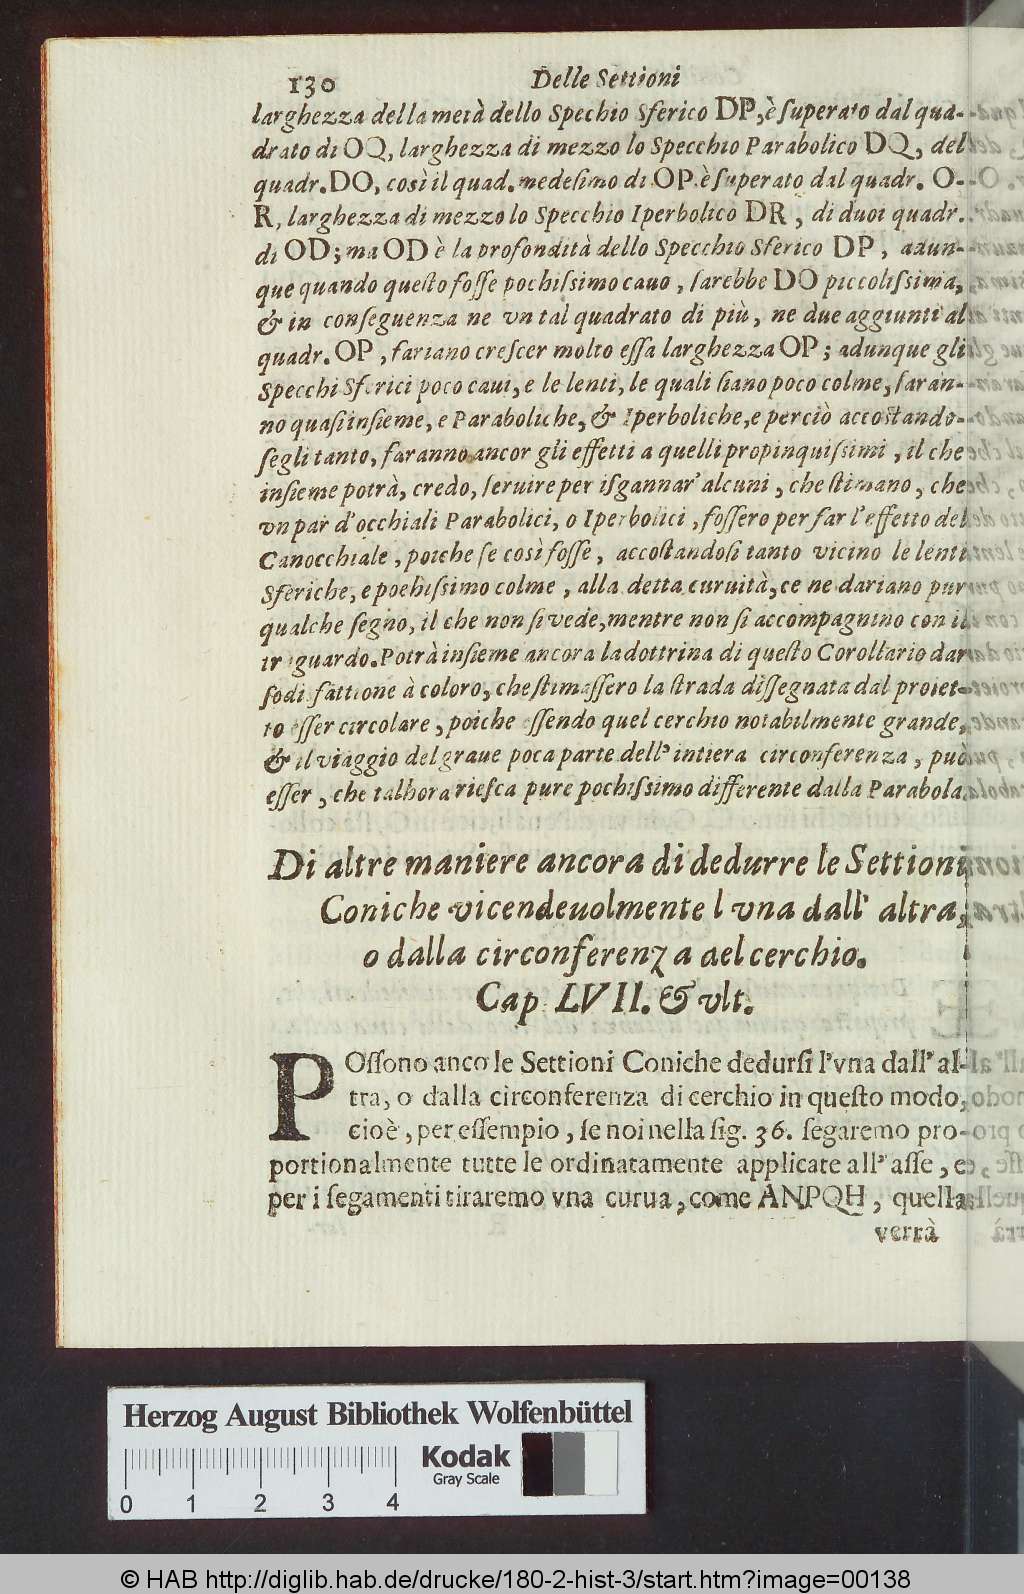 130 Delle Settioni
larghezza della metà dello Spechio Sferico DP, è ſuperato dal qua-
drato di OQ, larghezza di mezzo lo Specchio Parabolico DQ, del
quadr. DO, così il quad. medeſimo di OP è ſuperato dal quadr. O-
R, larghezza di mezzo lo Specchio Iperbolico DR, di duoi quadr.
di OD; ma OD è la profondità dello Specchio Sferico DP, adun-
que quando queſto foſſe pochiſsimo cauo, ſarebbe DO piccoliſsima,
& in conſeguenza ne vn tal quadrato di più, ne due aggiunti al
quadr. OP, fariano creſcer molto eſſa larghezza OP; adunque gli
Specchi Sferici poco caui, e le lenti, le quali ſiano poco colme, ſaran-
no quaſi inſieme, e Paraboliche, & Iperboliche, e perciò accoſtando-
ſegli tanto, faranno ancor gli effetti a quelli propinquiſsimi, il che
inſieme potrà, credo, ſeruire per iſgannar' alcuni, che ſtimano, che
vn par d'occhiali Parabolici, o Iperbolici, foſſero per far l'effetto del
Canocchiale, poiche ſe così foſſe, accoſtandoſi tanto vicino le lenti
Sferiche, e poehiſsimo colme, alla detta curuità, ce ne dariano pur
qualche ſegno, il che non ſi vede, mentre non ſi accompagnino con il
traguardo. Potrà inſieme ancora la dottrina di queſto Corollario dar
ſodisfattione à coloro, che ſtimaſſero la ſtrada diſſegnata dal proiet-
to eſſer circolare, poiche eſſendo quel cerchio notabilmente grande,
& il viaggio del graue poca parte dell' intiera circonferenza, può
eſſer, che talhora rieſca pure pochiſsimo differente dalla Parabola.
Di altre maniere ancora di dedurre le Settioni
Coniche vicendeuolmente l vna dall' altra,
o dalla circonferenza del cerchio.
Cap LVII. & vlt.
POſſono anco le Settioni Coniche dedurſi l'vna dall' al-
tra, o dalla circonferenza di cerchio in queſto modo,
cioè, per eſſempio, ſe noi nella fig. 36. ſegaremo pro-
portionalmente tutte le ordinatamente applicate all' aſſe, e
per i ſegamenti tiraremo vna curua, come ANPQH, quella
verrà
Herzog August Bibliothek Wolfenbüttel
Kodak
Gray Scale
0 1 2 3 4
© HAB http://diglib.hab.de/drucke/180-2-hist-3/start.htm?image=00138